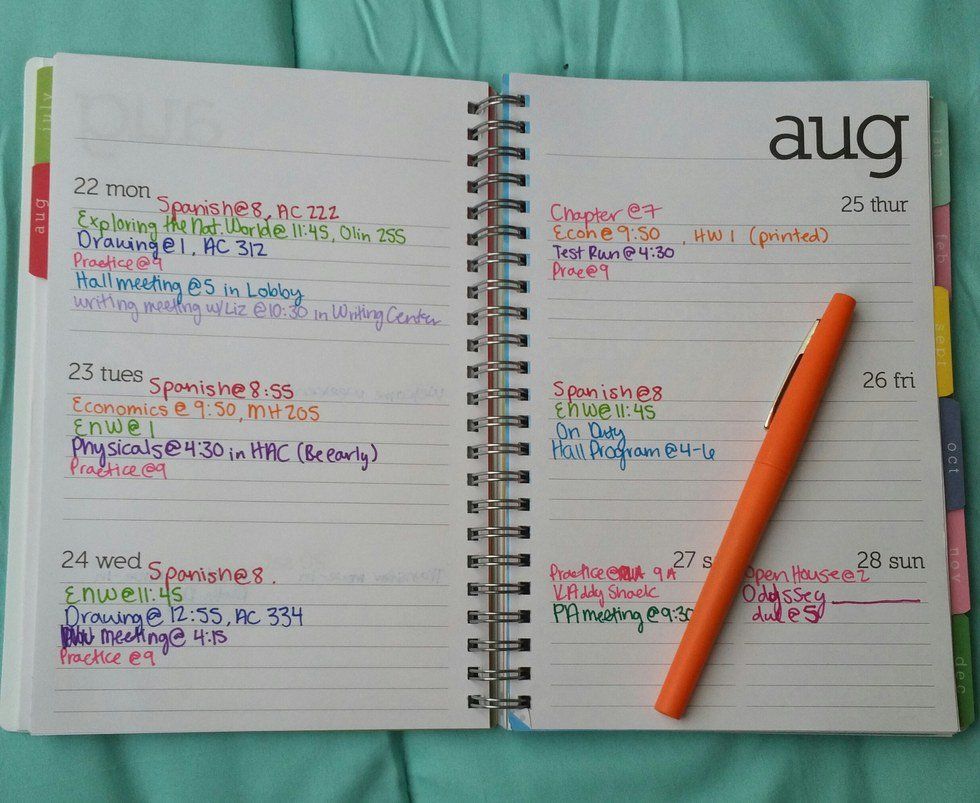 july
aug
22 mon
Spanish@8, AC 222
Exploring the Nat. World@ 11:45, Olin 255
Drawing@1, AC 312
Practice@9
Hall meeting @5 in Lobby
writing meeting w/Liz @10:30 in Writing Center
23 tues
Spanish@8:55
Economics @ 9:50, MH 205
ENW@1
Physicals@4:30 in HAC (Be early)
Practice@9
24 wed
Spanish@8.
ENW@11:45
Drawing@ 12:55, AC 334
meeting@ 4:15
Practice @9
aug
25 thur
Chapter @7
Econ@ 9:50 , HW 1 (printed)
Test Run @4:30
Prac@9
26 fri
Spanish@8
ENW@11:45
On Duty
Hall Program @4-6
27 s
Practice@ 9A
KAddy Shack
PA meeting @9:30
28 sun
Open House@2
Odyssey
due @5
jan
feb
sept
oct
nov
dec